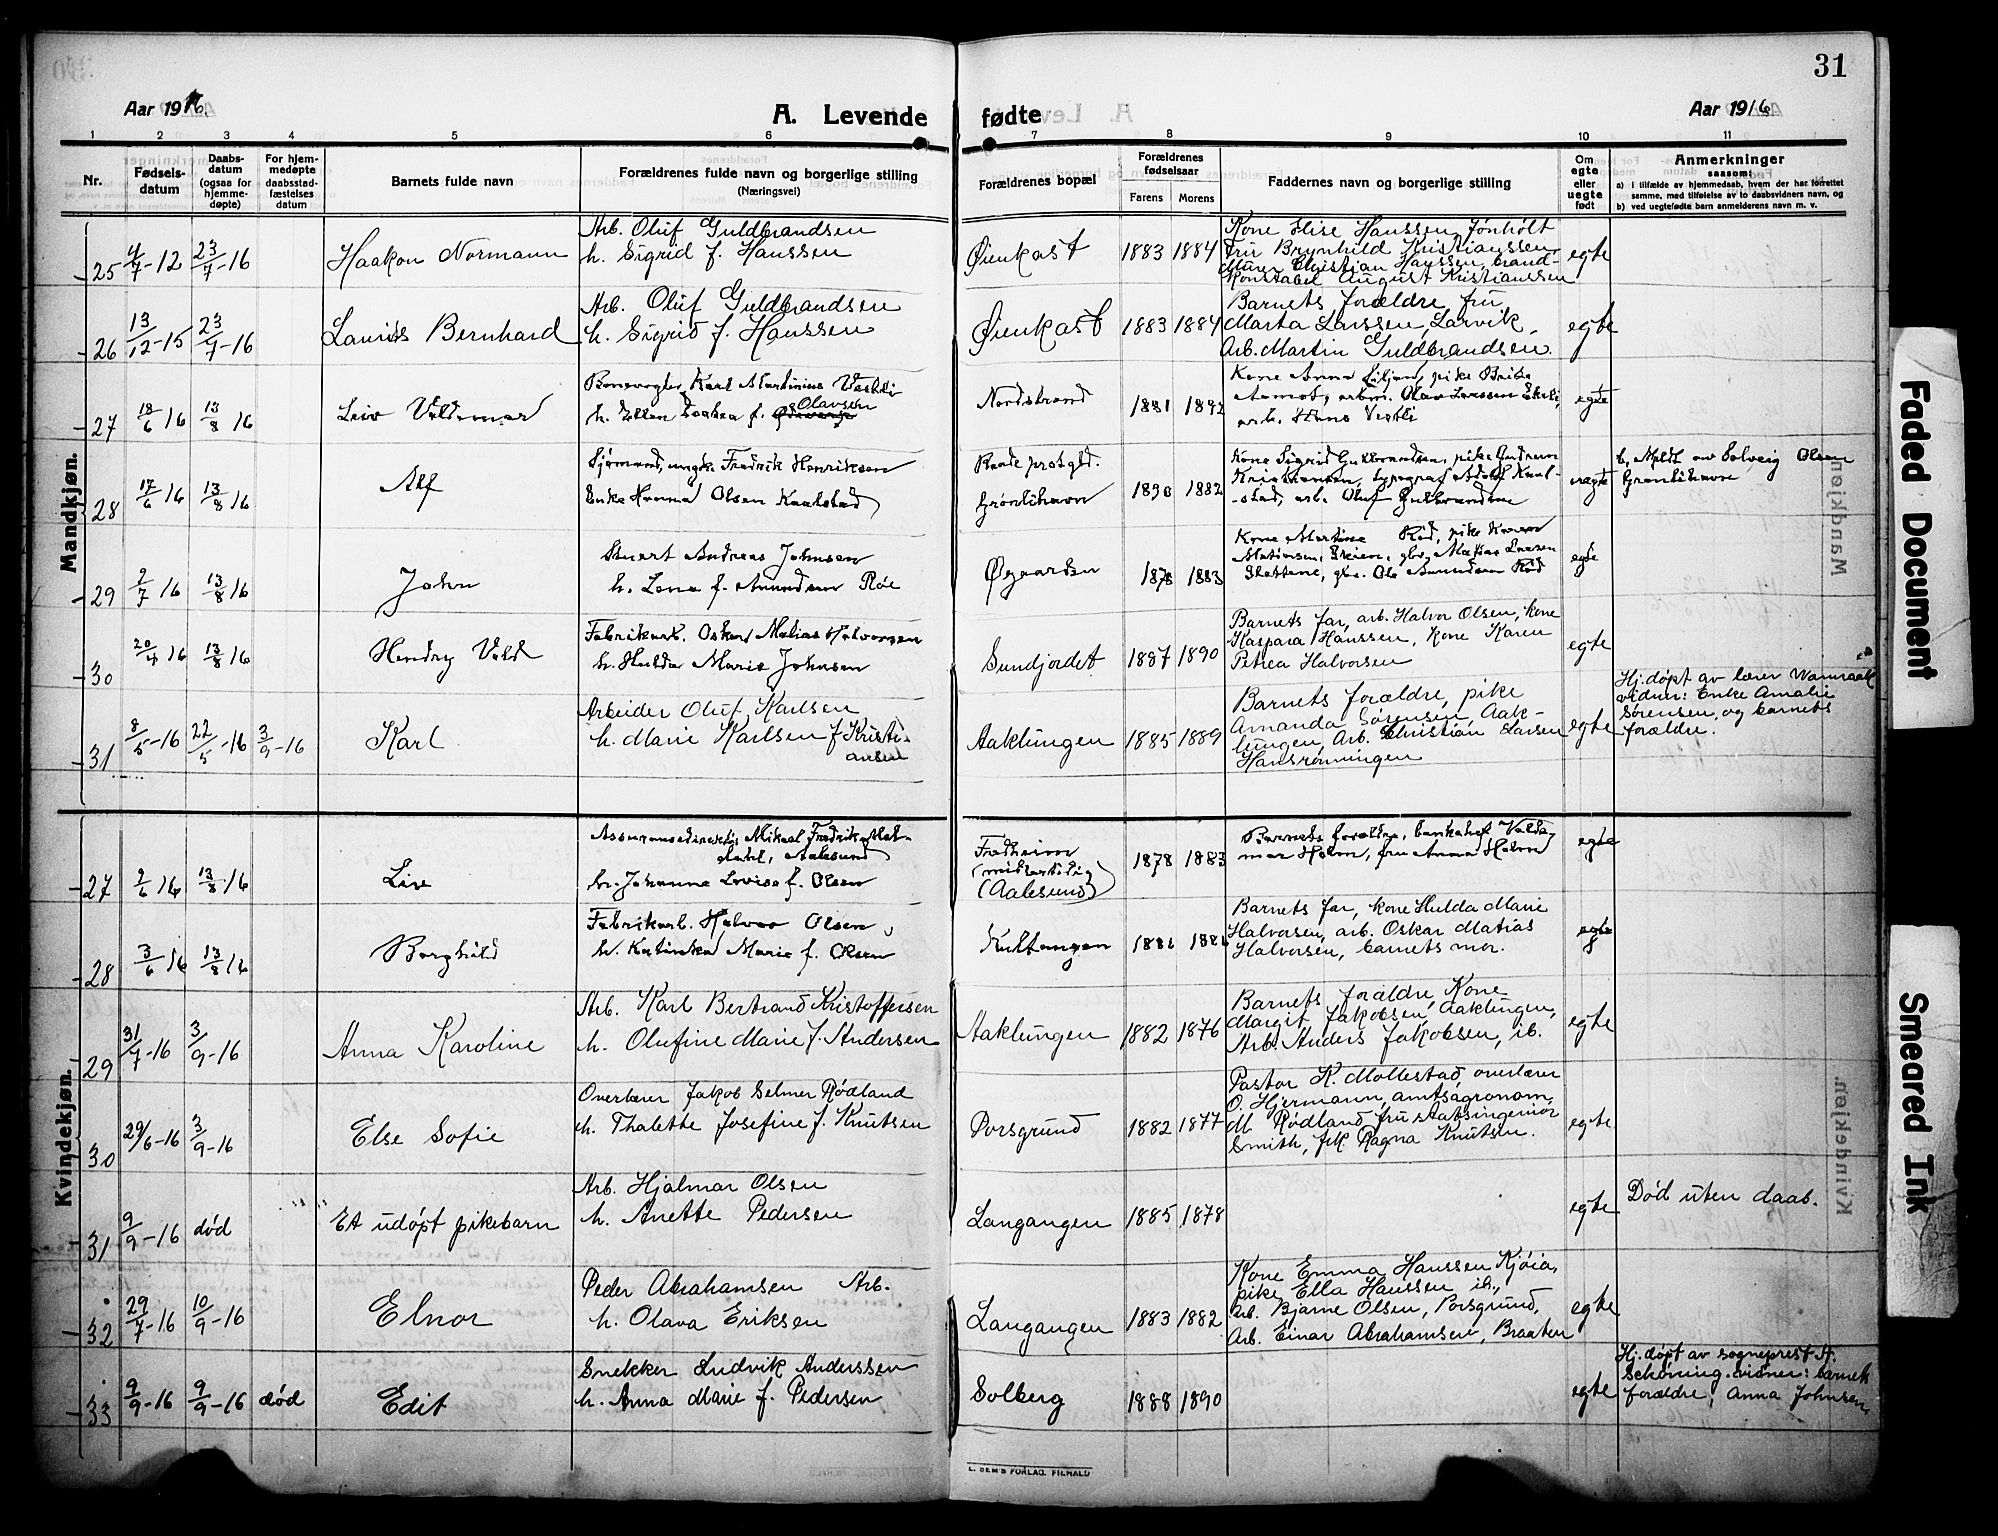 31
Aar 1916.
A. Levende fødte
Aar 1916
1 2 3 4 5 6 7 8 9 10 11
Nr.
Fødsels-
datum
Daabs-
datum
(ogsaa for
hjemme-
døpte)
For hjem-
medøpte
daabsstad-
fæstelses
datum
Barnets fulde navn
Forældrenes fulde navn og borgerlige stilling
(Næringsvei)
Forældrenes bopæl
Forældrenes
fødselsaar
Farens Morens
Faddernes navn og borgerlige stilling
Om
egte
eller
uegte
født
Anmerkninger
saasom:
a) i tilfælde av hjemmedaab, hvem der har forrettet
samme, med tilføielse av to daabsvidners navn, og
b) ved uegtefødte barn anmelderens navn m. v.
Mandkjøn.
25 4/7-12 23/7-16 Haakon Normann
Arb. Oluf Guldbrandsen
h. Sigrid f. Hanssen
Øienkast 1883 1884
Kone Elise Hanssen, Jønholt
Fru Brynhild Kristianssen
Murer Christian Hanssen, brand-
konstabel August Kristianssen
egte
26 13/12-15 23/7-16 Laurits Bernhard
Arb. Oluf Guldbrandsen
h. Sigrid f. Hanssen
Øienkast 1883 1884
Barnets forældre, fru
Marta Larssen, Larvik,
Arb. Martin Guldbrandsen.
egte
27 18/6 16 13/8 16 Leiv Valdemar
Karl Martinius Vestli
h. Ellen f. Olavsen
Nordstrand 1881
Kone Anna pike
arb. Hans Vestli
egte
28 17/6 16 13/8 16 Alf
Sjømand, ungk. Fredrik Henriksen
Enke Hanna Olsen Kaalstad
Raade prstgld.
Grønlihavn 1890 1882
Kone Sigrid Gulbrandsen, pike Gudrun
Kristiansen, typograf Adolf Kaal-
stad, arb. Oluf Gulbrandsen
uegte
b, Meldt av Solveig Olsen
Grønlihavn
29 9/7 16 13/8 16 John
Andreas Johnsen
h. Lena f. Amundsen Røe
Øgaarden 1878 1883
Kone Martine Rød, pike Karen
Mathisen, Skien, Larsen
Slettene, Ole Amundsen Rød
egte
30 20/4 16 13/8 16 Hendry Vald
Fabrikarb. Oskar Matias Halvorsen
h. Hulda Marie Johnsen
Sundjordet 1887 1890
Barnets far, arb. Halvor Olsen, kone
Kaspara Hanssen, kone Karen
Petrea Halvorsen
egte
31 8/5-16 22/5-16 3/9-16 Karl
Arbeider Oluf Karlsen
h. Marie Karlsen f. Kristi-
ansen
Aaklungen 1885 1889
Barnets forældre, pike
Amanda Sørensen, Aak-
lungen, Arb. Christian Larsen
Hansrønningen
egte
Hj.døpt av lærer Wamraak
vidner: Enke Amalie
Sørensen, og barnets
forældre.
Kvindekjøn.
27 2/6 16 13/8 16 Liv
Assuransedirektør Mikael Fredrik
Aalesund
h. Johanne Lovise f. Olsen
Fredheim
(midlertidig)
(Aalesund)
1878 1883
Barnets forældre, Valde-
mar Holm, fru Anna Holm
egte
28 3/6 16 13/8 16 Borghild
Fabrikarb. Halvor Olsen,
h. Katinka Marie f. Olsen
Kultangen 1886
Barnets far, kone Hulda Marie
Halvorsen, arb. Oskar Matias
Halvorsen, barnets mor.
egte
29 31/7-16 3/9-16 Anna Karoline
Arb. Karl Bertrand Kristoffersen
h. Olufine Marie f. Andersen
Aaklungen 1882 1876
Barnets forældre, Kone
Margit Jakobsen, Aaklungen,
Arb. Anders Jakobsen, ib.
egte
30 29/6-16 3/9-16 Else Sofie
Overlærer Jakob Selmer Rødland
h. Thalette Josefine f. Knutsen
Porsgrund 1882 1877
Pastor K. Mollestad, overlærer
O. Hjermann, amtsagronom
M. Rødland, fru statsingeniør
Smith, frk. Ragna Knutsen.
egte
31 9/9-16 død Et udøpt pikebarn
Arb. Hjalmar Olsen
h. Anette Pedersen
Langangen 1885 1878
egte
Død uten daab.
32 29/7-16 10/9-16 Elnor
Peder Abrahamsen Arb.
h. Olava Eriksen
Langangen 1883 1882
Kone Emma Hanssen Kjøia,
pike Ella Hanssen ib.,
Arb. Bjarne Olsen, Porsgrund,
Arb. Einar Abrahamsen, Braaten
egte
33 9/9-16 9/9-16 død Edit
Snekker Ludvik Anderssen
h. Anna Marie f. Pedersen
Solberg 1888 1890
egte
Hj.døpt av sogneprest H.
Schøning. vidner: barnets
forældre, Anna Johnsen.
E. SEM'S FORLAG, FR.HALD
Faded Document
Smeared Ink